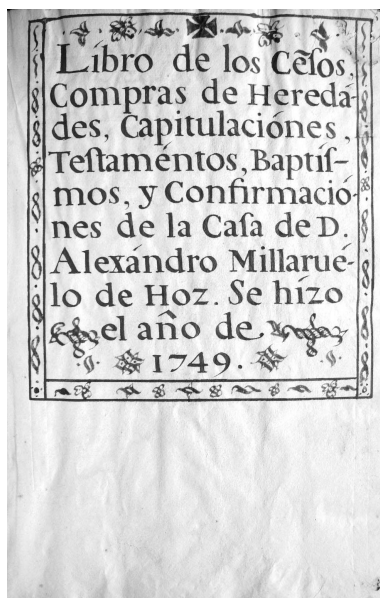 Líbro de los Cẽſos,
Compras de Heredá-
des, Capitulaciónes,
Teſtaméntos, Baptiſ-
mos, y Confirmació-
nes de la Caſa de D.
Alexándro Millarué-
lo de Hoz. Se hízo
el año de
1749.